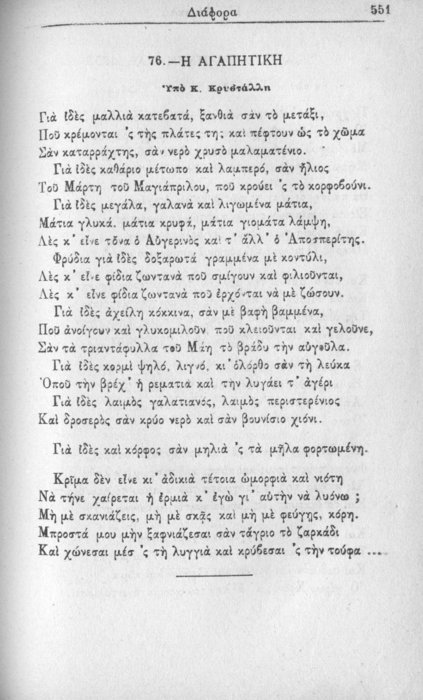 Διάφορα
551
76.—Η ΑΓΑΠΗΤΙΚΗ
Ὑπὸ Κ. Κρυστάλλη
Γιὰ ἰδὲς μαλλιὰ κατεβατά, ξανθιὰ σὰν τὸ μετάξι,
Ποῦ κρέμονται 'ς τῆς πλάτες τη; καὶ πέφτουν ὡς τὸ χῶμα
Σὰν καταρράχτης, σὰν νερὸ χρυσὸ μαλαματένιο.
Γιὰ ἰδὲς καθάριο μέτωπο καὶ λαμπερό, σὰν ἥλιος
Τοῦ Μάρτη τοῦ Μαγιάπριλου, ποῦ κρούει 'ς τὸ κορφοβούνι.
Γιὰ ἰδὲς μεγάλα, γαλανὰ καὶ λιγωμένα μάτια,
Μάτια γλυκά, μάτια κρυφά, μάτια γιομάτα λάμψη,
Λὲς κ' εἶνε τὄνα ὁ Αὐγερινὸς καὶ τ' ἄλλ' ὁ Ἀποσπερίτης.
Φρύδια γιὰ ἰδὲς δοξαρωτὰ γραμμένα μὲ κοντύλι,
Λὲς κ' εἶνε φίδια ζωντανὰ ποῦ σμίγουν καὶ φιλιοῦνται,
Λὲς κ' εἶνε φίδια ζωντανὰ ποῦ ἔρχονται νὰ μὲ ζώσουν.
Γιὰ ἰδὲς ἀχείλη κόκκινα, σὰν μὲ βαφὴ βαμμένα,
Ποῦ ἀνοίγουν καὶ γλυκομιλοῦν, ποῦ κλειοῦνται καὶ γελοῦνε,
Σὰν τὰ τριαντάφυλλα τοῦ Μάη τὸ βράδυ τὴν αὐγοῦλα.
Γιὰ ἰδὲς κορμὶ ψηλό, λιγνό, κι' ὁλόρθο σὰν τὴ λεύκα
Ὁποῦ τὴν βρέχ' ἡ ρεματιὰ καὶ τὴν λυγάει τ' ἀγέρι
Γιὰ ἰδὲς λαιμὸς γαλατιανός, λαιμὸς περιστερένιος
Καὶ δροσερὸς σὰν κρύο νερὸ καὶ σὰν βουνίσιο χιόνι.
Γιὰ ἰδὲς καὶ κόρφος σὰν μηλιὰ 'ς τὰ μῆλα φορτωμένη.
Κρῖμα δὲν εἶνε κι' ἀδικιὰ τέτοια ὠμορφιὰ καὶ νιότη
Νὰ τήνε χαίρεται ἡ ἐρμιὰ κ' ἐγὼ γι' αὐτὴν νὰ λυόνω ;
Μὴ μὲ σκανιάζεις, μὴ μὲ σκᾷς καὶ μὴ μὲ φεύγῃς, κόρη.
Μπροστά μου μὴν ξαφνιάζεσαι σὰν τἄγριο τὸ ζαρκάδι
Καὶ χώνεσαι μέσ 'ς τὴ λυγγιὰ καὶ κρύβεσαι 'ς τὴν τούφα ...